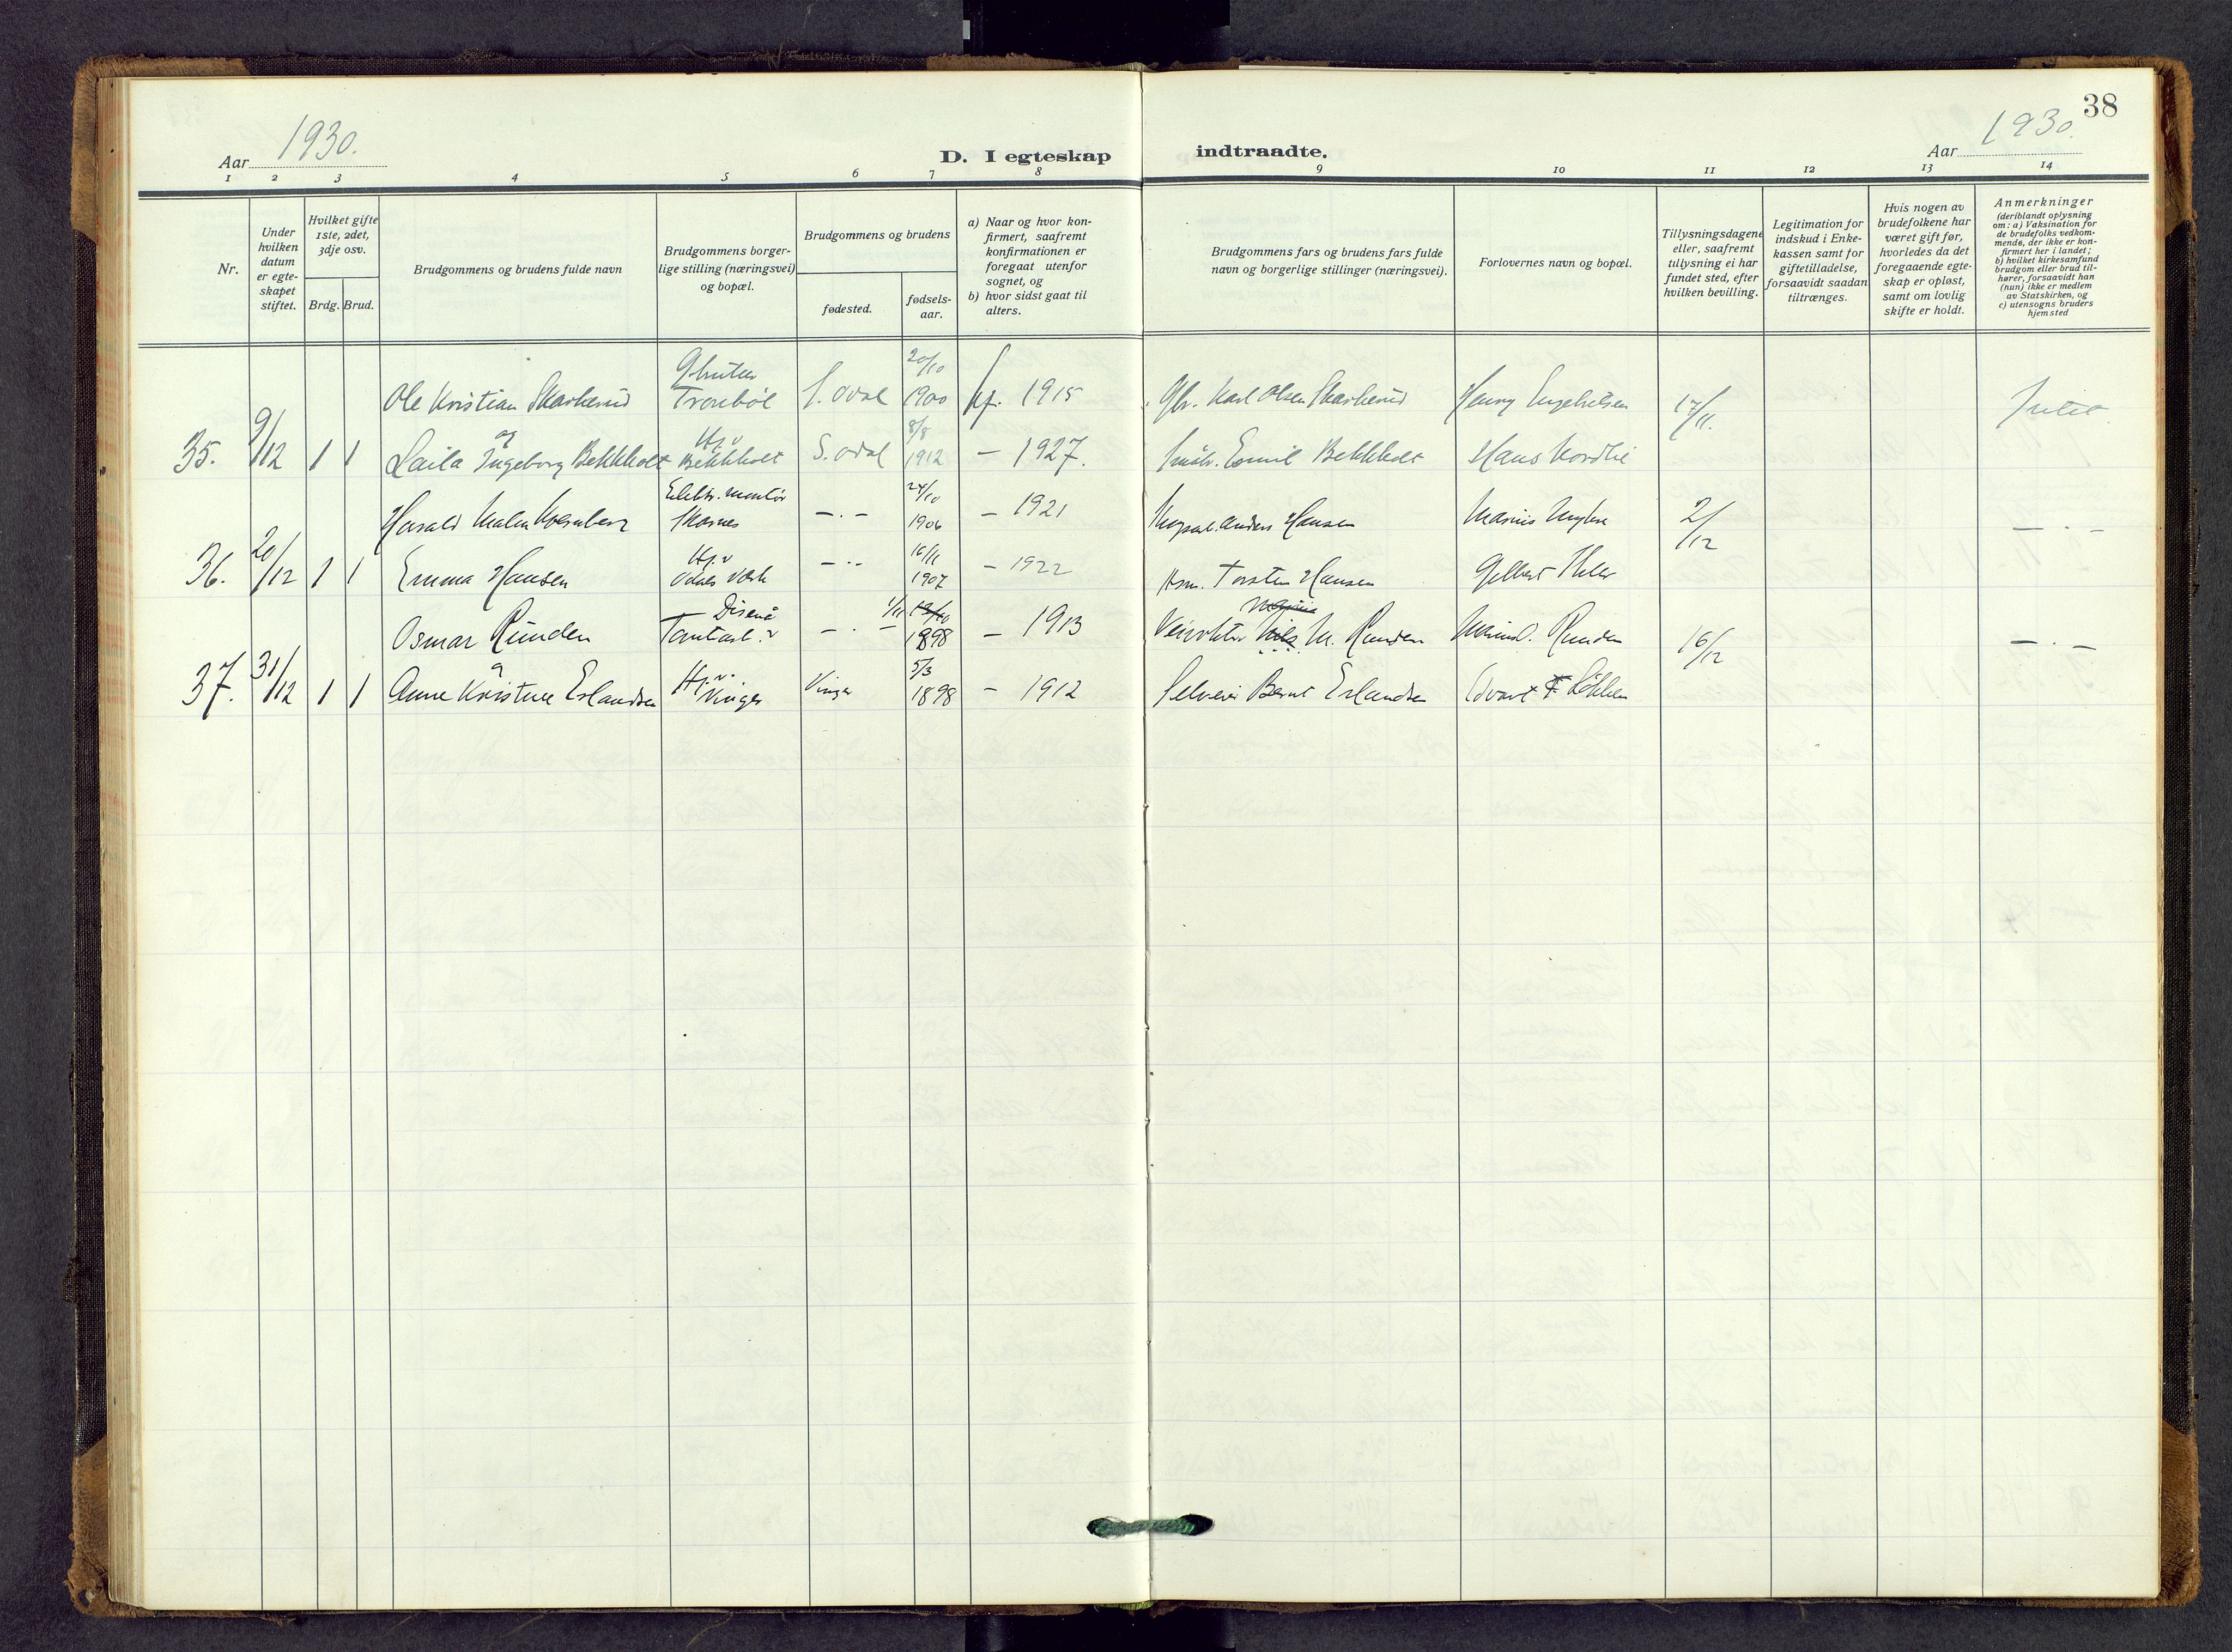 38
Aar 1930.
D. I egteskap indtraadte.
Aar 1930.
1 2 3 4 5 6 7 8 9 10 11 12 13 14
Nr.
Under
hvilken
datum
er egte-
skapet
stiftet.
Hvilket gifte
1ste, 2det,
3dje osv.
Brdg. Brud.
Brudgommens og brudens fulde navn
Brudgommens borger-
lige stilling (næringsvei)
og bopæl.
Brudgommens og brudens
fødested.
fødsels-
aar.
a) Naar og hvor kon-
firmert, saafremt
konfirmationen er
foregaat utenfor
sognet, og
b) hvor sidst gaat til
alters.
Brudgommens fars og brudens fars fulde
navn og borgerlige stillinger (næringsvei).
Forlovernes navn og bopæl.
Tillysningsdagene
eller, saafremt
tillysning ei har
fundet sted, efter
hvilken bevilling.
Legitimation for
indskud i Enke-
kassen samt for
giftetilladelse,
forsaavidt saadan
tiltrænges.
Hvis nogen av
brudefolkene har
været gift før,
hvorledes da det
foregaaende egte-
skap er opløst,
samt om lovlig
skifte er holdt.
Anmerkninger
(deriblandt oplysning
om: a) Vaksination for
de brudefolks vedkom-
mende, der ikke er kon-
firmert her i landet;
b) hvilket kirkesamfund
brudgom eller brud til-
hører, forsaavidt han
(hun) ikke er medlem
av Statskirken, og
c) utensogns bruders
hjemsted
20/10
Ole Kristian Skarherud S. Odal 1900 kf. 1915 Gbr. Karl Olsen Skarherud Henry Engebretsen 17/11.
og Hj.v 8/8
35. 9/12 1 1 Laila Ingeborg Bekkholt Bekkholt S. Odal 1912 - 1927. Emil Bekkholt Hans Nordli
Elektr. montör 24/10
Harald Malm Skarnes -.- 1906 - 1921 Anders Hansen Marius 2/12 -.-
Hj.v 16/11
36. 20/12 1 1 Emma Hansen Odals Værk -.- 1907 - 1922 Torsten Hansen Gilbert
Disenå 1/11
Osmar Runden -.- 1898 - 1913 M. Runden Runden 16/12 -.-
og Hj.v. 5/3
37. 31/12 1 1 Anne Kristine Erlandsen Vinger Vinger 1898 - 1912 Selveier Bernt Erlandsen Edvart Løkken